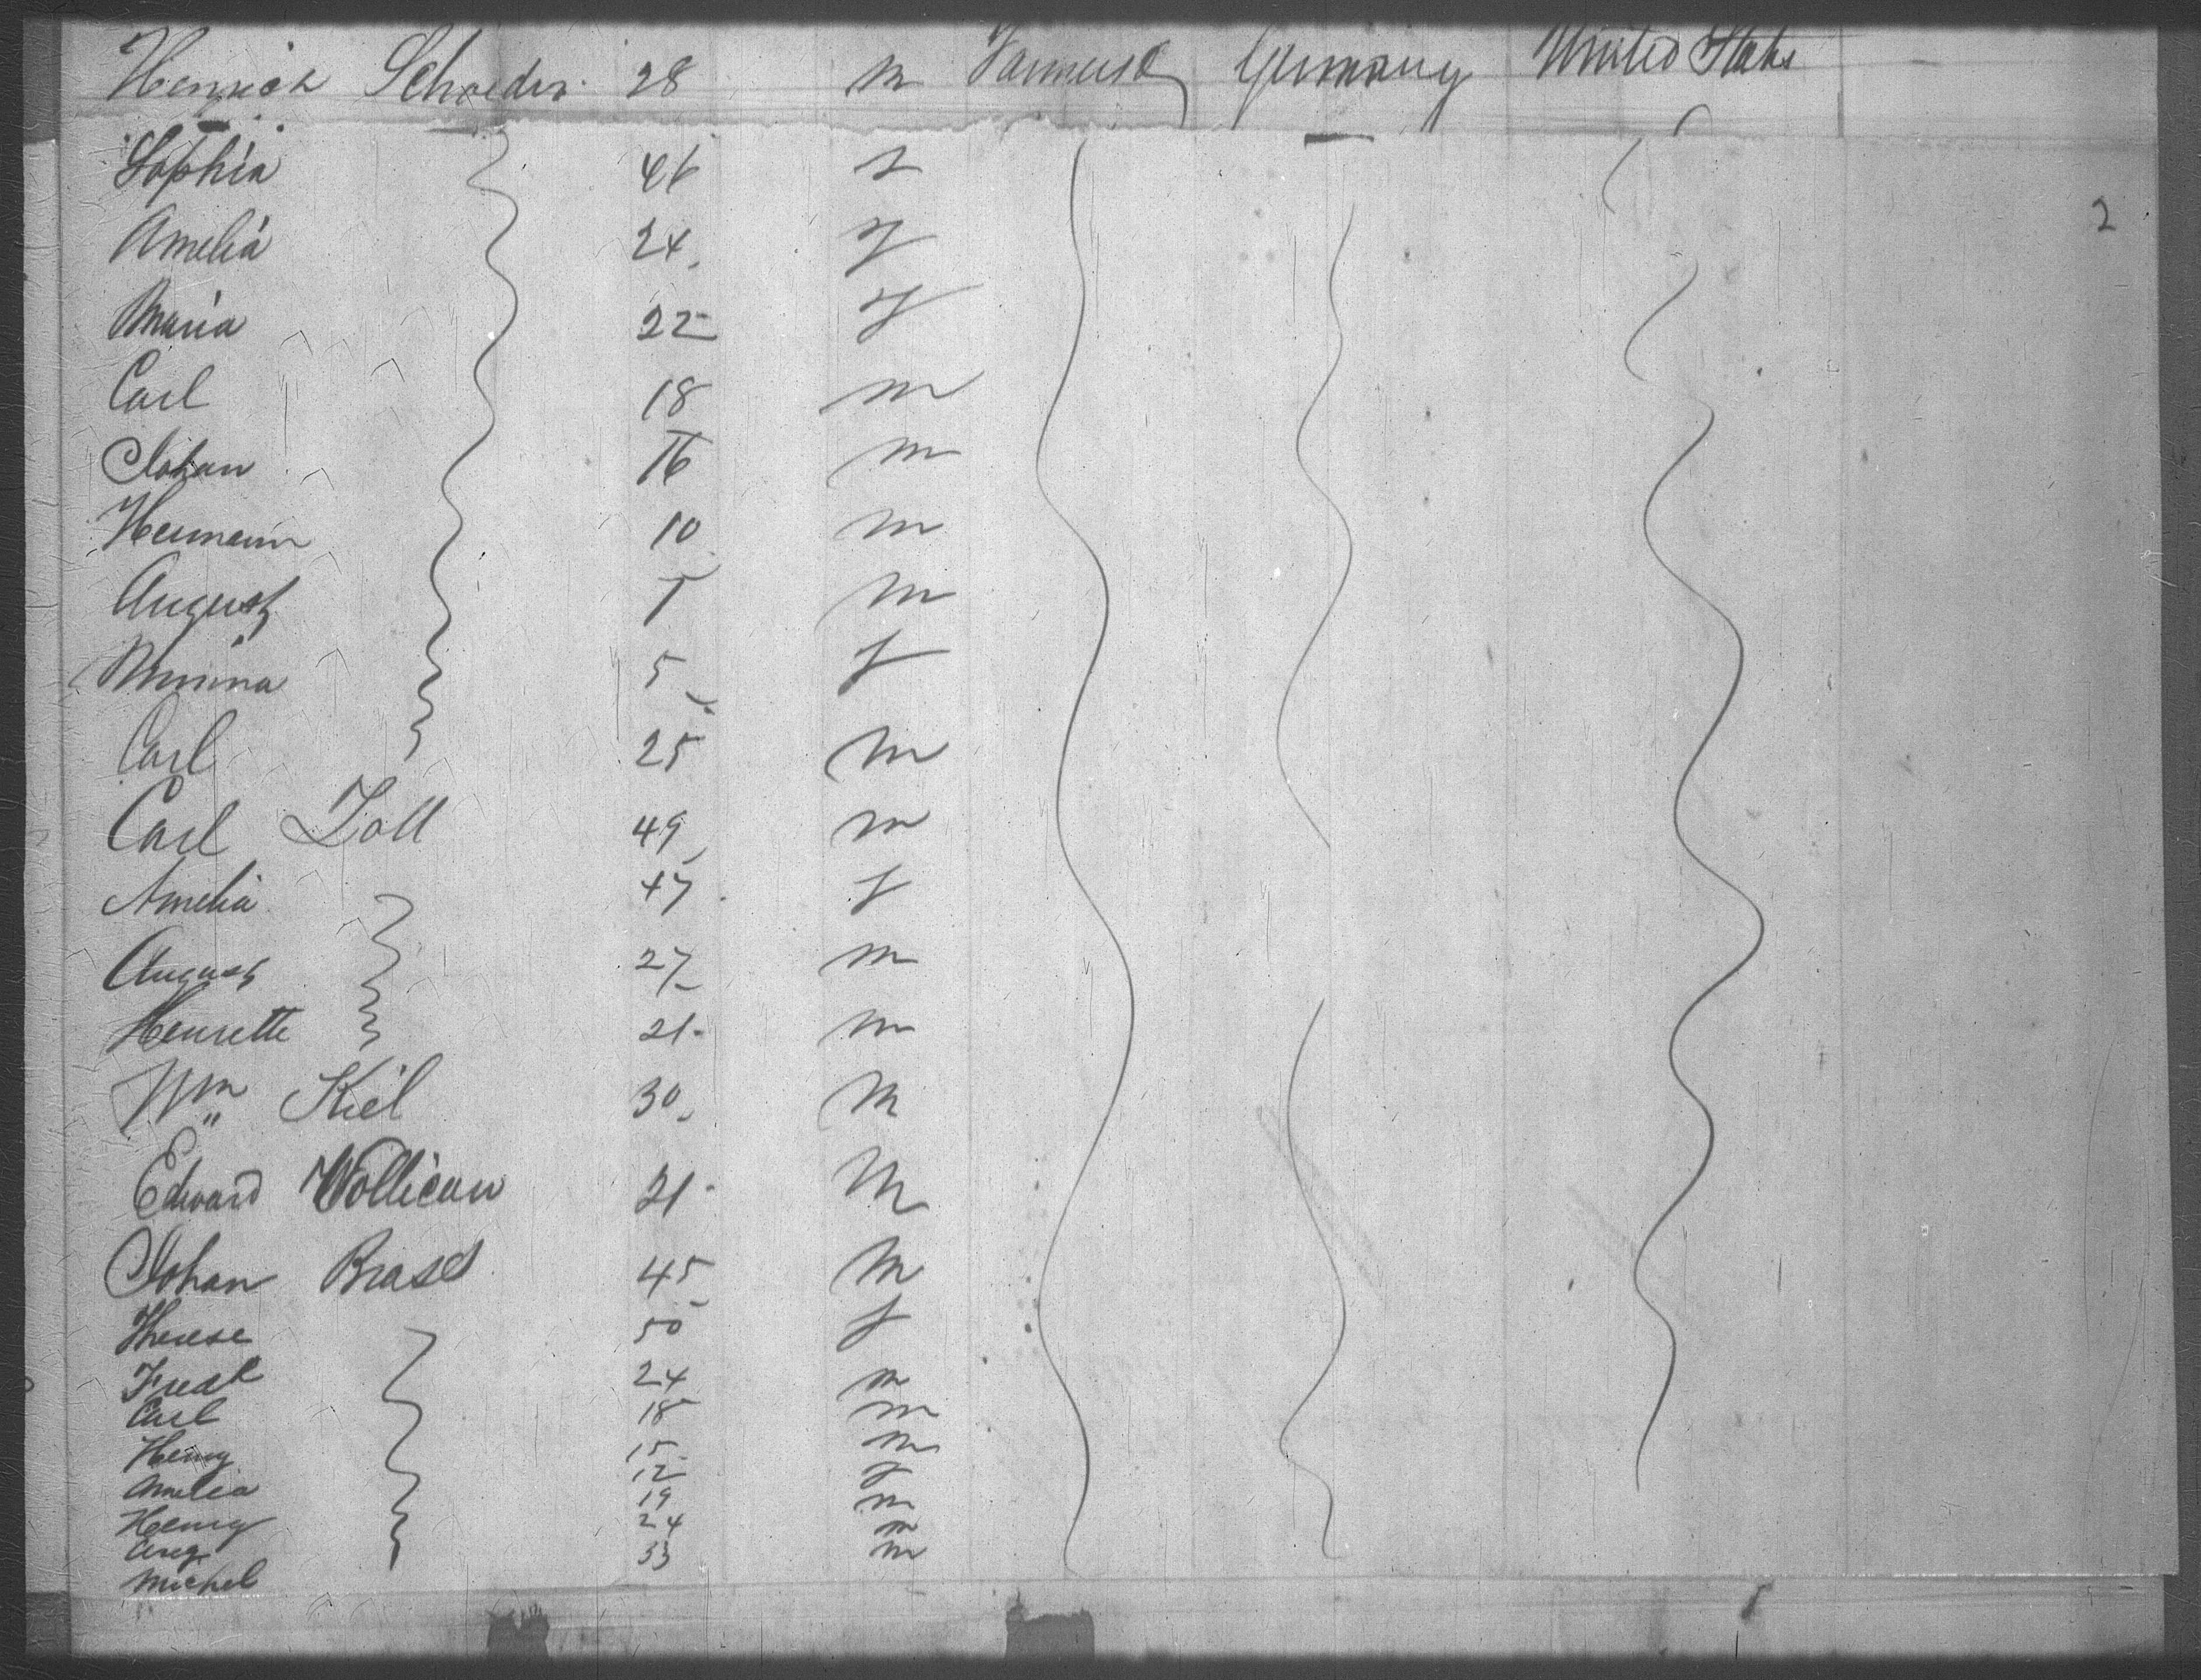 Henrich Schroeder 28 m Farmers Germany United States
Sophia 46 f
2
Amelia 24 f
Maria 22 f
Carl 18 m
Johan 16 m
Hermann 10 m
August m
Minina 5 f
Carl 25 m
Carl Zoll 49 m
Amelia 47 f
August 27 m
Henrette 21 m
Wm Kiel 30 m
Edward 21 m
Johan 45 m
Therese 50 f
Fredk 24 m
Carl 18 m
Henry 15 m
Amelia 12 f
Henry 19 m
Aug 24 m
Michel 33 m